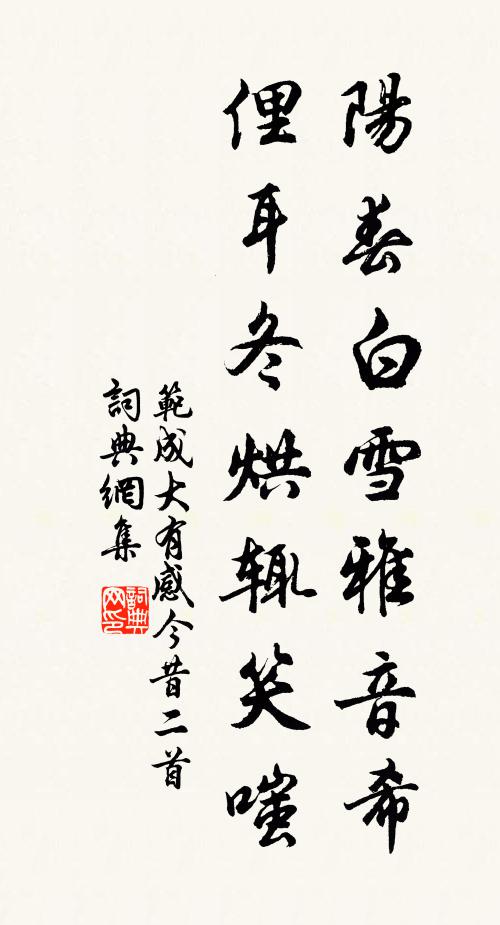 陽春白雪雅音希
俚耳冬烘辄笑嗤
範成大有感今昔二首
詞典網集
詞典网印